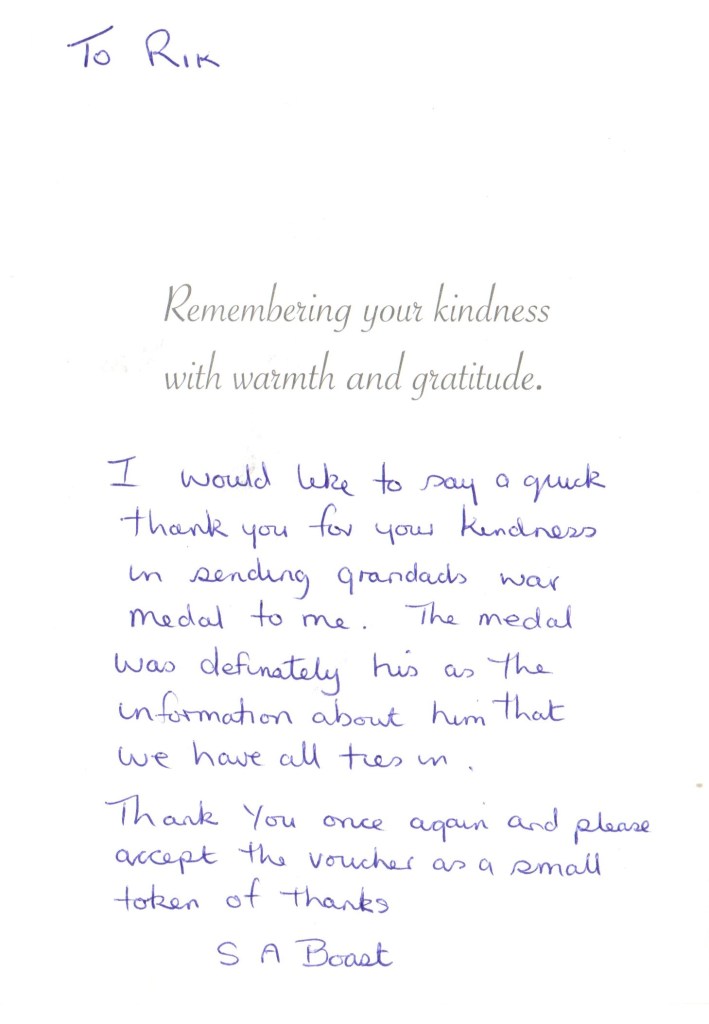 To Rik
Remembering your kindness
with warmth and gratitude.
I would like to say a quick
thank you for your kindness
in sending grandads war
medal to me. The medal
was definately his as the
information about him that
we have all ties in.
Thank You once again and please
accept the voucher as a small
token of thanks
S A Boast